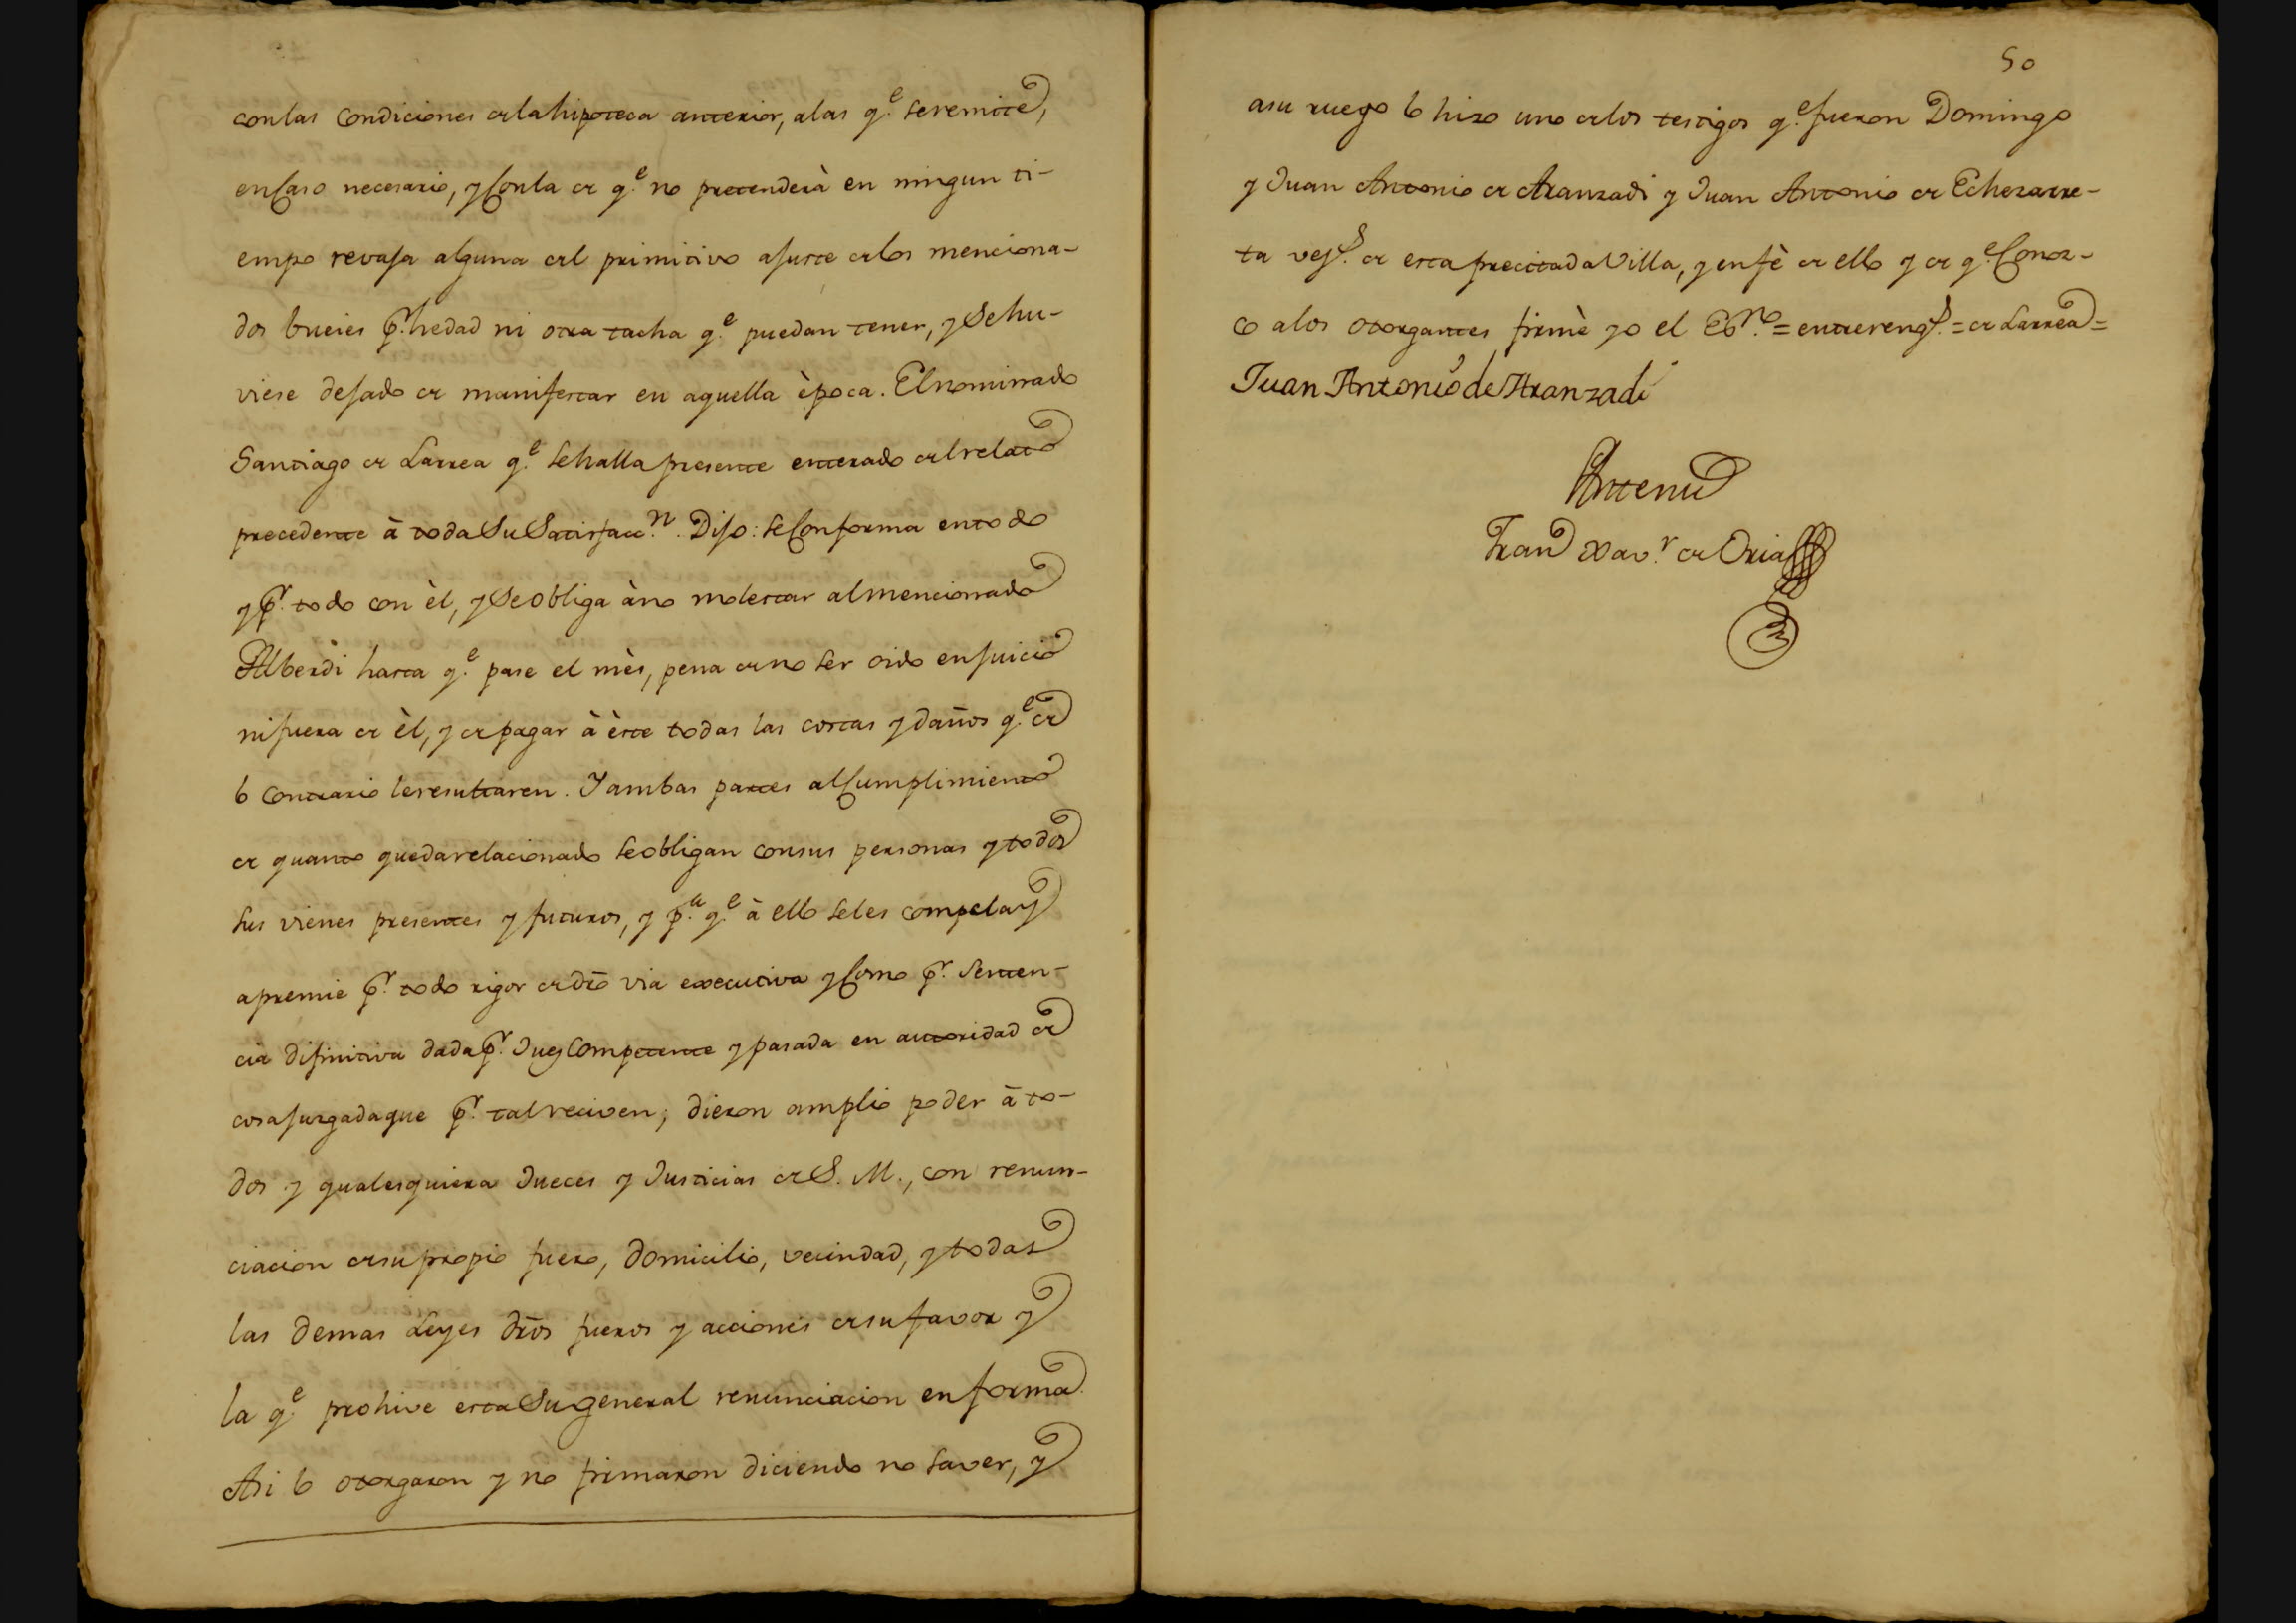 con las condiciones de la hipoteca anterior, a las q.e se remite,
en caso necesario, y con la de q.e no pretenderà en ningun ti-
empo revaja alguna del primitivo ajuste de los menciona-
dos bueies p.r hedad ni otra tacha q.e puedan tener, y se hu-
viese dejado de manifestar en aquella època. El nominado
Santiago de Larrea q.e se halla presente enterado del relato
precedente à toda su satisfacc.n. Dijo: se conforma en todo
y p.r todo con èl, y se obliga à no molestar al mencionado
Alberdi hasta q.e pase el mès, pena de no ser oido en juicio
ni fuera de èl, y de pagar à èste todas las costas y daños q.e de
lo contrario le resultaren. Y ambas partes al cumplimiento
de quanto queda relacionado se obligan con sus personas y todos
sus vienes presentes y futuros, y p.a q.e à ello se les compela y
apremie p.r todo rigor de dro via executiva y como p.r senten-
cia difinitiva dada p.r Juez competente y pasada en autoridad de
cosa juzgada que p.r tal reciven; dieron amplio poder à to-
dos y qualesquiera Jueces y Justicias de S. M., con renun-
ciacion de su propio fuero, domicilio, vecindad, y todas
las demas Leyes dros fueros y acciones de su favor y
la q.e prohive esta su general renunciacion en forma.
Asi lo otorgaron y no firmaron diciendo no saver, y
50
a su ruego lo hizo uno de los testigos q.e fueron Domingo
y Juan Antonio de Aranzadi y Juan Antonio de Echezarre-
ta vez.s de esta precitada Villa, y en fè de ello y de q.e conoz-
co a los otorgantes firmè yo el Es.no = entrereng.s = de Larrea =
Juan Antonio de Aranzadi
Antemi
Fran.co Xav.r de Oria